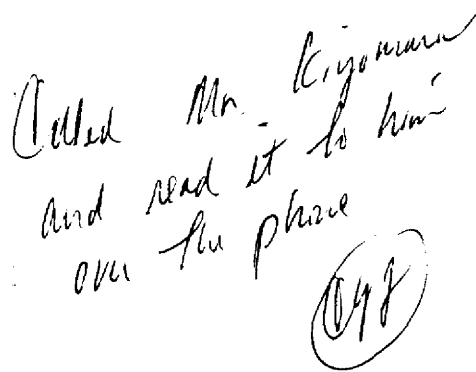 Called Mr. Kiyomura
and read it to him
over the phone